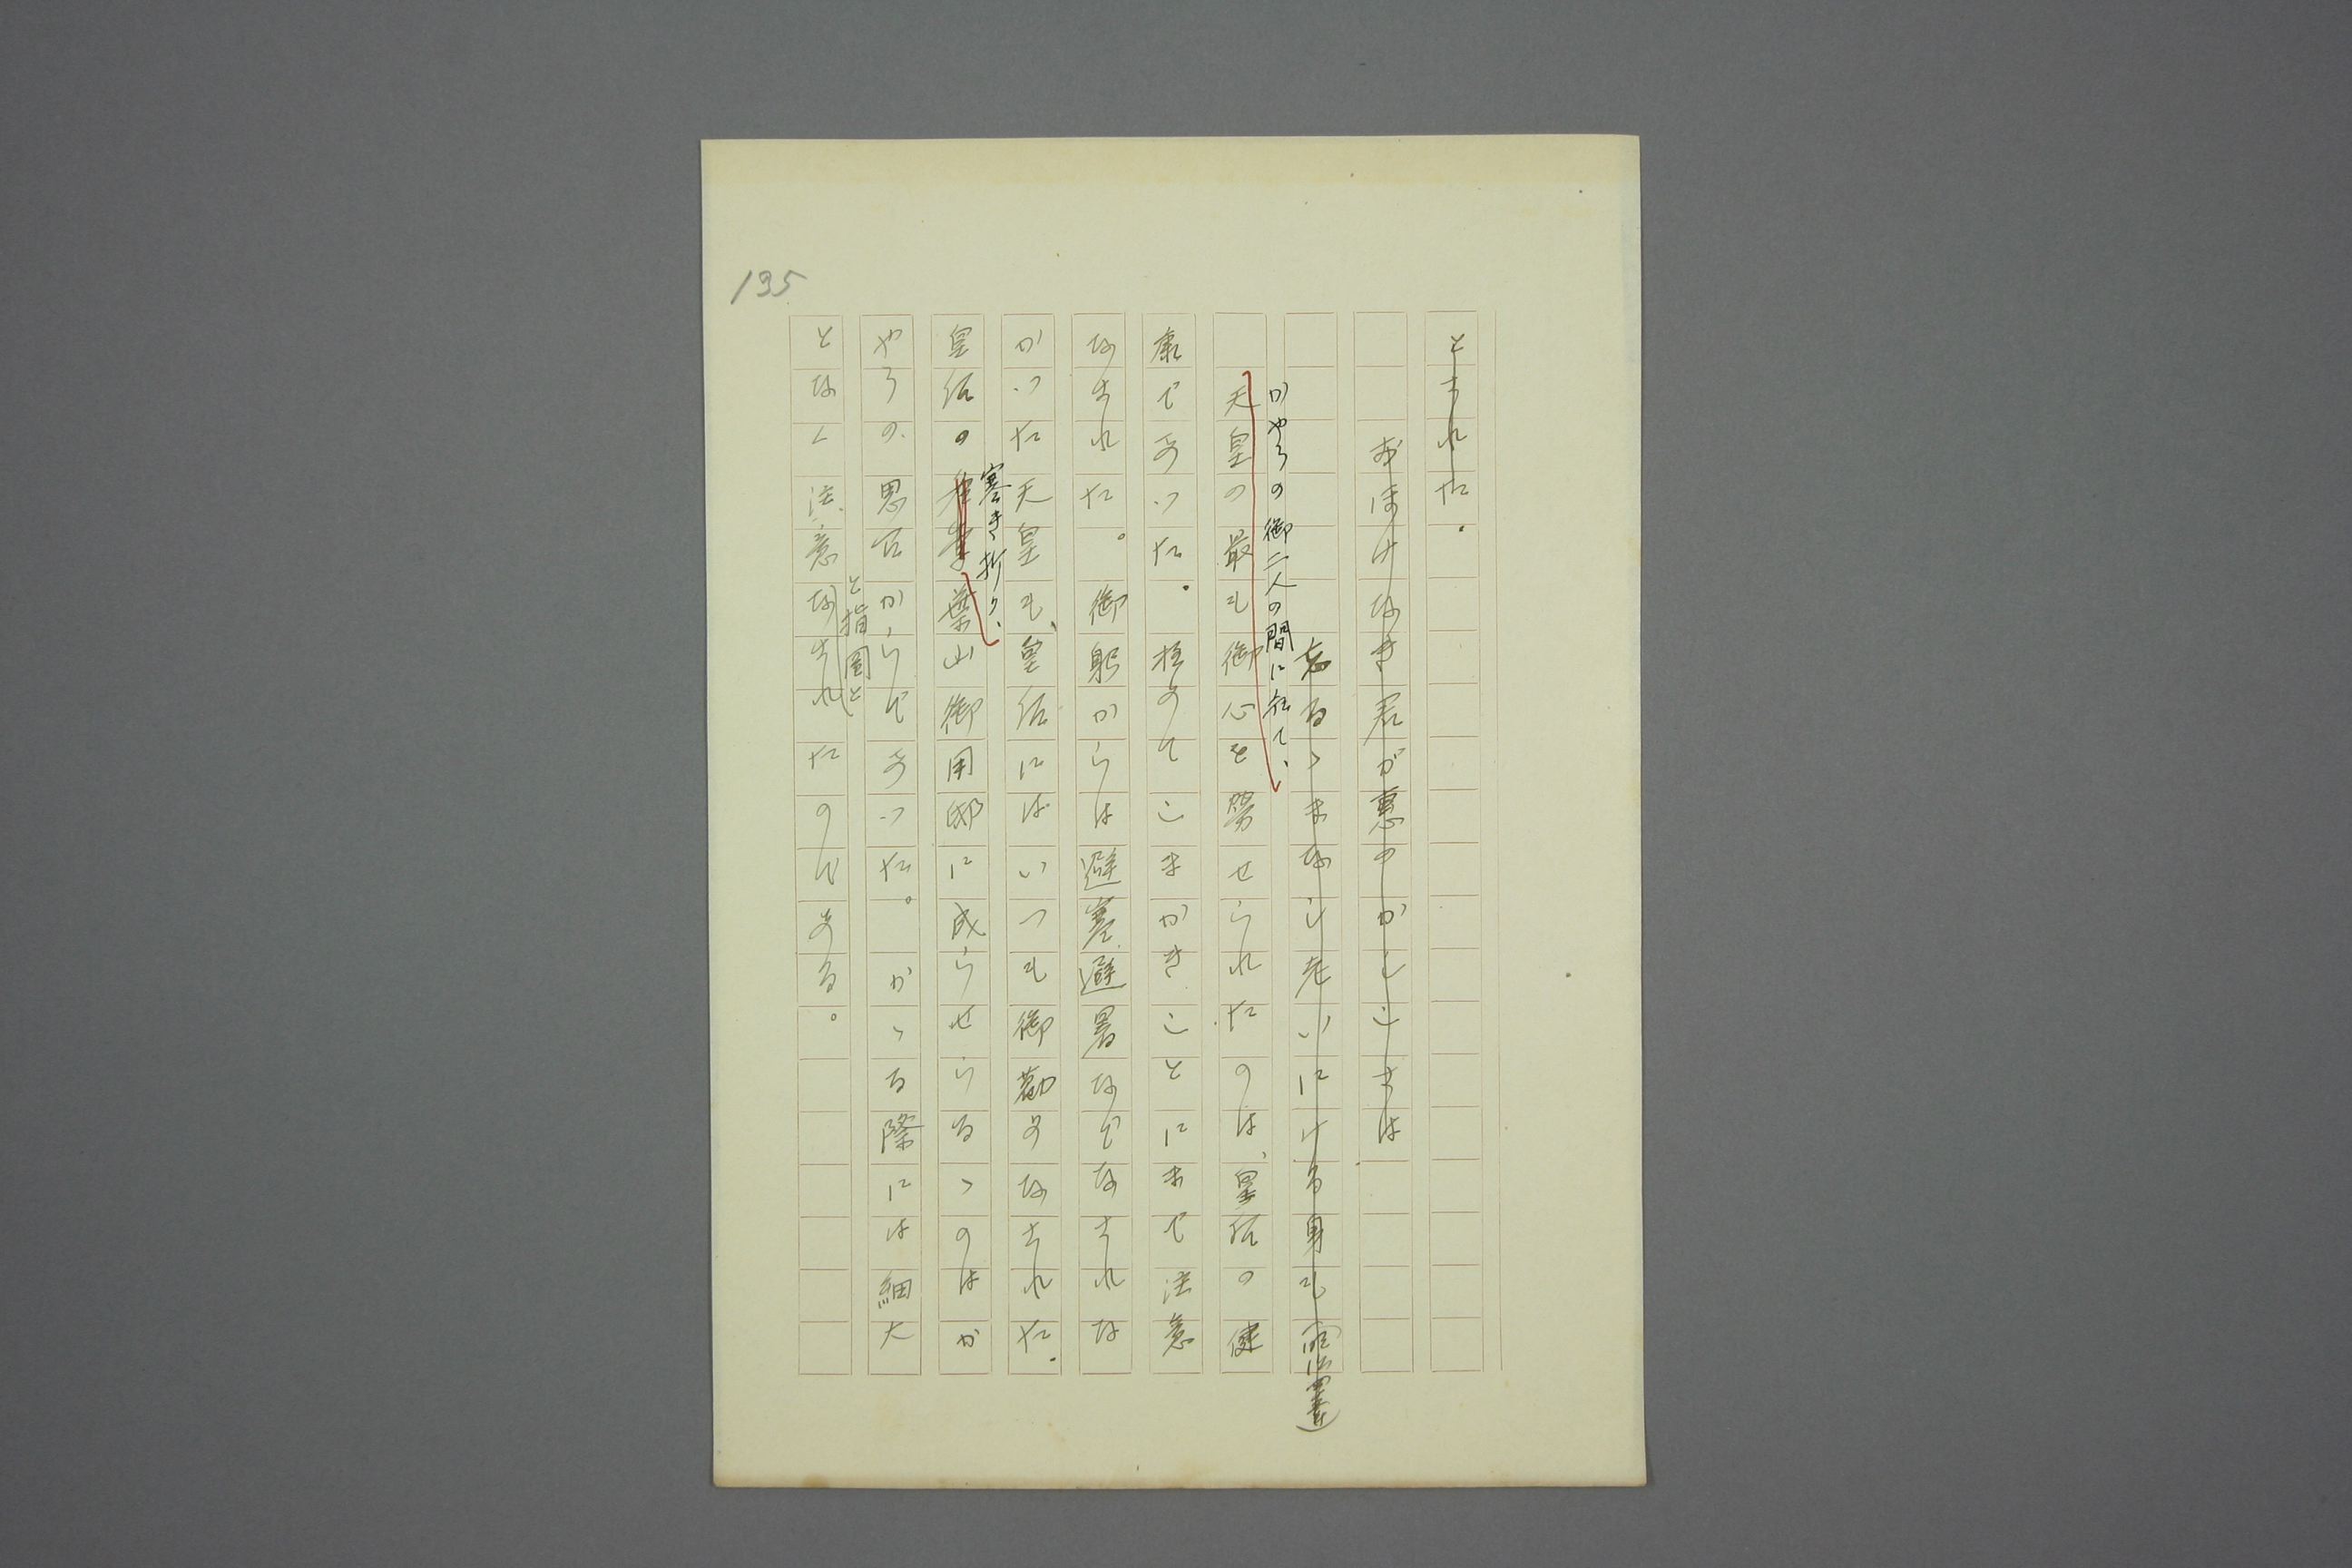 135
とされた。
おほけなき君が恵のかしこさは
忘るゝまなし老いにける身も
かやうの御二人の間に在て、
天皇の最も御心を労せられたのは、皇后の健
康であつた。極めてこまかきことにまで注意
なされた。御躬からは避寒避暑などなされな
かつた天皇も、皇后にはいつも御勧めなされた。
寒き折り、
皇后の葉山御用邸に成らせらるゝのはか
やうの思召からであつた。かゝる際には細大
と指図と
となく注意なされたのである。